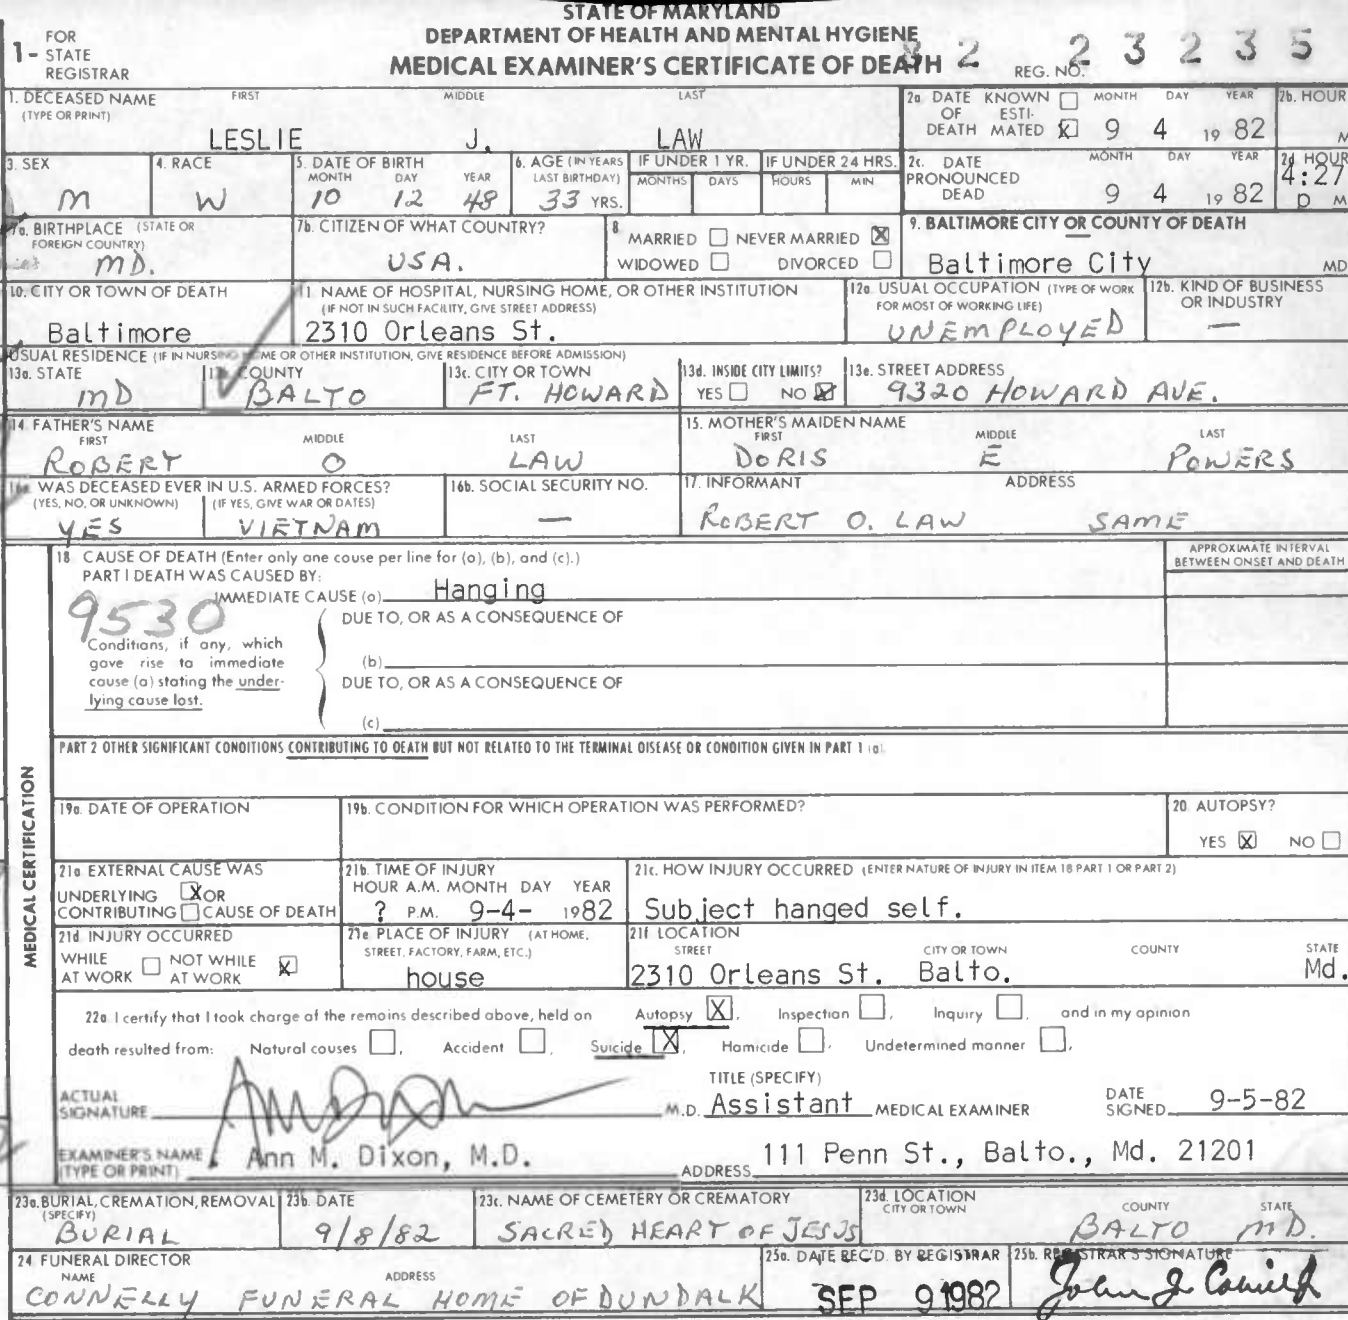 STATE OF MARYLAND
DEPARTMENT OF HEALTH AND MENTAL HYGIENE
MEDICAL EXAMINER'S CERTIFICATE OF DEATH
1- FOR STATE REGISTRAR
REG. NO. 82 23235
1. DECEASED NAME (TYPE OR PRINT) FIRST MIDDLE LAST
LESLIE J. LAW
2a DATE OF DEATH KNOWN ☐ ESTIMATED ☒ MONTH DAY YEAR
9 4 19 82
2b. HOUR M
3. SEX
M
4. RACE
W
5. DATE OF BIRTH MONTH DAY YEAR
10 12 48
6. AGE (IN YEARS LAST BIRTHDAY)
33 YRS.
IF UNDER 1 YR. MONTHS DAYS
IF UNDER 24 HRS. HOURS MIN
2c. DATE PRONOUNCED DEAD MONTH DAY YEAR
9 4 19 82
2d HOUR
4:27 P M
7a. BIRTHPLACE (STATE OR FOREIGN COUNTRY)
MD.
7b. CITIZEN OF WHAT COUNTRY?
USA.
8 MARRIED ☐ NEVER MARRIED ☒
WIDOWED ☐ DIVORCED ☐
9. BALTIMORE CITY OR COUNTY OF DEATH
Baltimore City MD
10. CITY OR TOWN OF DEATH
Baltimore
11. NAME OF HOSPITAL, NURSING HOME, OR OTHER INSTITUTION
(IF NOT IN SUCH FACILITY, GIVE STREET ADDRESS)
2310 Orleans St.
12a. USUAL OCCUPATION (TYPE OF WORK FOR MOST OF WORKING LIFE)
UNEMPLOYED
12b. KIND OF BUSINESS OR INDUSTRY
—
USUAL RESIDENCE (IF IN NURSING HOME OR OTHER INSTITUTION, GIVE RESIDENCE BEFORE ADMISSION)
13a. STATE
MD
COUNTY
BALTO
13c. CITY OR TOWN
FT. HOWARD
13d. INSIDE CITY LIMITS?
YES ☐ NO ☒
13e. STREET ADDRESS
9320 HOWARD AVE.
14 FATHER'S NAME FIRST MIDDLE LAST
ROBERT O LAW
15. MOTHER'S MAIDEN NAME FIRST MIDDLE LAST
DORIS E POWERS
16a WAS DECEASED EVER IN U.S. ARMED FORCES?
(YES, NO, OR UNKNOWN) (IF YES, GIVE WAR OR DATES)
YES VIETNAM
16b. SOCIAL SECURITY NO.
—
17. INFORMANT ADDRESS
ROBERT O. LAW SAME
MEDICAL CERTIFICATION
18 CAUSE OF DEATH (Enter only one cause per line for (a), (b), and (c).)
APPROXIMATE INTERVAL BETWEEN ONSET AND DEATH
PART I DEATH WAS CAUSED BY:
IMMEDIATE CAUSE (a) Hanging
9530
DUE TO, OR AS A CONSEQUENCE OF
Conditions, if any, which
gave rise to immediate
cause (a) stating the under-
lying cause last.
(b)
DUE TO, OR AS A CONSEQUENCE OF
(c)
PART 2 OTHER SIGNIFICANT CONDITIONS CONTRIBUTING TO DEATH BUT NOT RELATED TO THE TERMINAL DISEASE OR CONDITION GIVEN IN PART 1 (a).
19a. DATE OF OPERATION
19b. CONDITION FOR WHICH OPERATION WAS PERFORMED?
20 AUTOPSY?
YES ☒ NO ☐
21a. EXTERNAL CAUSE WAS
UNDERLYING ☒ OR
CONTRIBUTING ☐ CAUSE OF DEATH
21b. TIME OF INJURY
HOUR A.M. MONTH DAY YEAR
? P.M. 9-4- 1982
21c. HOW INJURY OCCURRED (ENTER NATURE OF INJURY IN ITEM 18 PART 1 OR PART 2)
Subject hanged self.
21d INJURY OCCURRED
WHILE AT WORK ☐ NOT WHILE AT WORK ☒
21e PLACE OF INJURY (AT HOME, STREET, FACTORY, FARM, ETC.)
house
21f LOCATION
STREET CITY OR TOWN COUNTY STATE
2310 Orleans St. Balto. Md.
22a I certify that I took charge of the remains described above, held an Autopsy ☒, Inspection ☐, Inquiry ☐, and in my opinion
death resulted from: Natural causes ☐, Accident ☐, Suicide ☒, Homicide ☐, Undetermined manner ☐.
ACTUAL SIGNATURE Ann Dixon M.D.
TITLE (SPECIFY)
Assistant MEDICAL EXAMINER
DATE SIGNED 9-5-82
EXAMINER'S NAME (TYPE OR PRINT) Ann M. Dixon, M.D.
ADDRESS 111 Penn St., Balto., Md. 21201
23a. BURIAL, CREMATION, REMOVAL (SPECIFY)
BURIAL
23b. DATE
9/8/82
23c. NAME OF CEMETERY OR CREMATORY
SACRED HEART OF JESUS
23d. LOCATION
CITY OR TOWN COUNTY STATE
BALTO MD.
24 FUNERAL DIRECTOR
NAME ADDRESS
CONNELLY FUNERAL HOME OF DUNDALK
25a. DATE REC'D. BY REGISTRAR
SEP 9 1982
25b. REGISTRAR'S SIGNATURE
John J.